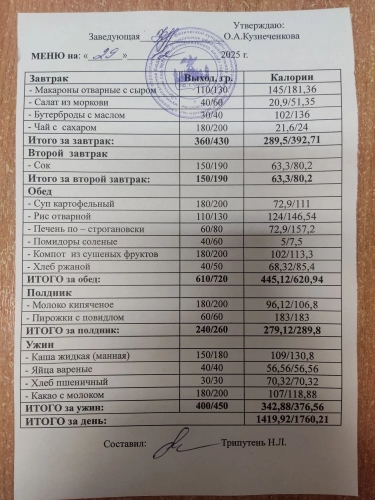 Утверждаю:
Заведующая О.А.Кузнеченкова
МЕНЮ на: « 29 » 2025 г.
Завтрак Выход, гр. Калории
- Макароны отварные с сыром 110/130 145/181,36
- Салат из моркови 40/60 20,9/51,35
- Бутерброды с маслом 30/40 102/136
- Чай с сахаром 180/200 21,6/24
Итого за завтрак: 360/430 289,5/392,71
Второй завтрак
- Сок 150/190 63,3/80,2
Итого за второй завтрак: 150/190 63,3/80,2
Обед
- Суп картофельный 180/200 72,9/111
- Рис отварной 110/130 124/146,54
- Печень по – строгановски 60/80 72,9/157,2
- Помидоры соленые 40/60 5/7,5
- Компот из сушеных фруктов 180/200 102/113,3
- Хлеб ржаной 40/50 68,32/85,4
ИТОГО за обед: 610/720 445,12/620,94
Полдник
- Молоко кипяченое 180/200 96,12/106,8
- Пирожки с повидлом 60/60 183/183
ИТОГО за полдник: 240/260 279,12/289,8
Ужин
- Каша жидкая (манная) 150/180 109/130,8
- Яйца вареные 40/40 56,56/56,56
- Хлеб пшеничный 30/30 70,32/70,32
- Какао с молоком 180/200 107/118,88
ИТОГО за ужин: 400/450 342,88/376,56
ИТОГО за день: 1419,92/1760,21
Составил: Трипутень Н.Л.